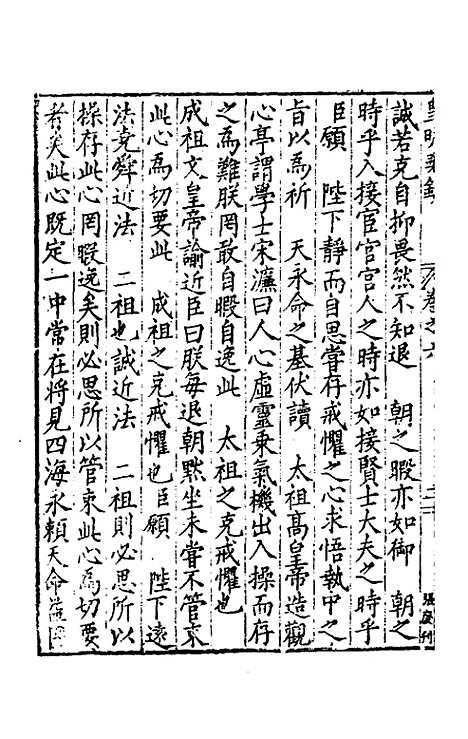 皇明疏鈔 卷之六 二
誠若克自抑畏然不知退 朝之暇亦如御 朝之
時乎入接宦官宮人之時亦如接賢士大夫之時乎
臣願 陛下靜而自思嘗存戒懼之心求悟執中之
旨以為祈 天永命之基伏讀 太祖高皇帝造觀
心亭謂學士宋濂曰人心虛靈乗氣機出入操而存
之為難朕罔敢自暇自逸此 太祖之克戒懼也
成祖文皇帝諭近臣曰朕每退朝黙坐未嘗不管束
此心為切要此 成祖之克戒懼也臣願 陛下遠
法堯舜近法 二祖也誠近法 二祖則必思所以
操存此心罔暇逸矣則必思所以管束此心為切要
者矣此心既定一中常在將見四海永頼天命益